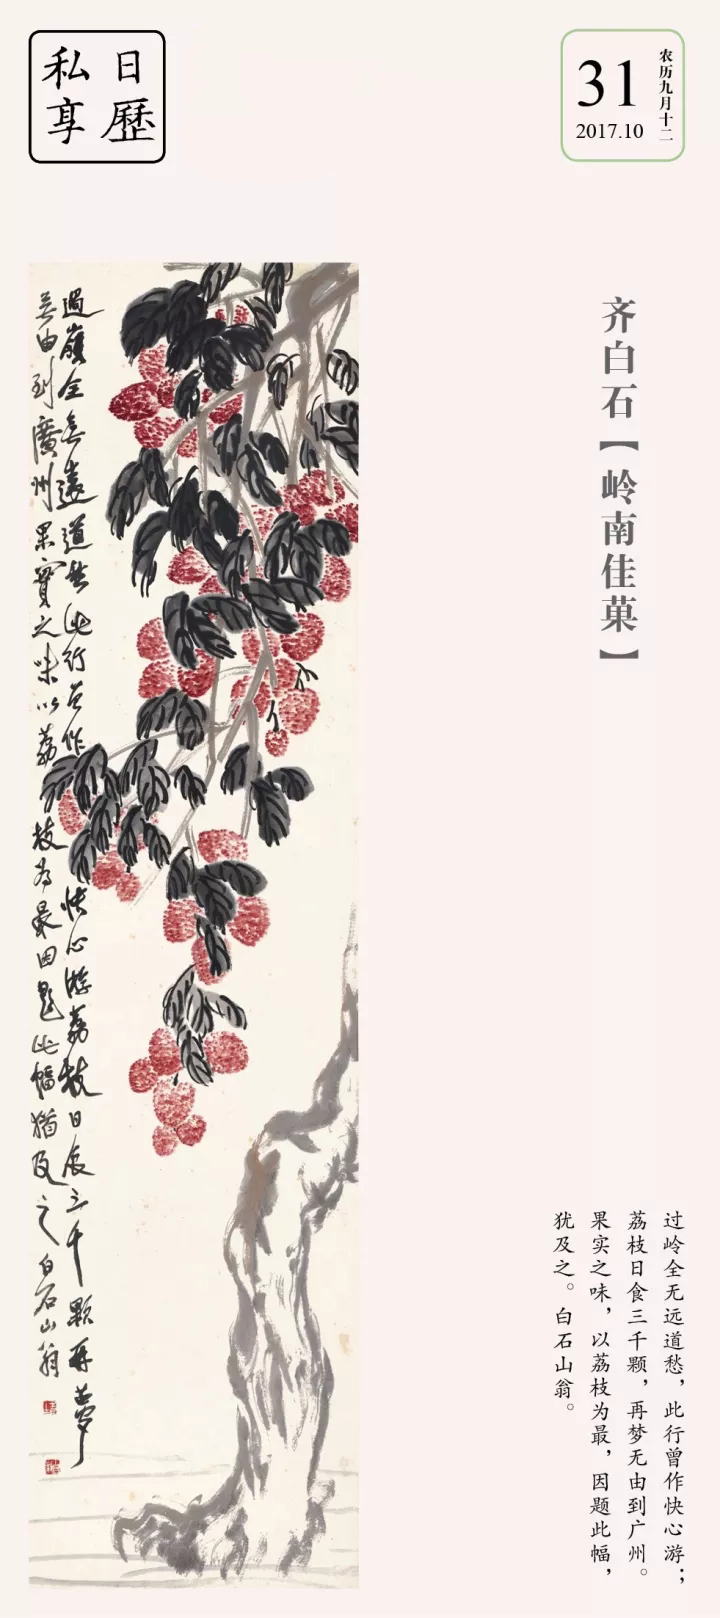 日歷
私享
31
2017.10
农历九月十二
齐白石【岭南佳菓】
過嶺全無遠道愁此行曾作快心游荔枝日食三千顆再夢
無由到廣州果實之味以荔枝為最因題此幅猶及之白石山翁
过岭全无远道愁，此行曾作快心游；
荔枝日食三千颗，再梦无由到广州。
果实之味，以荔枝为最，因题此幅，
犹及之。白石山翁。